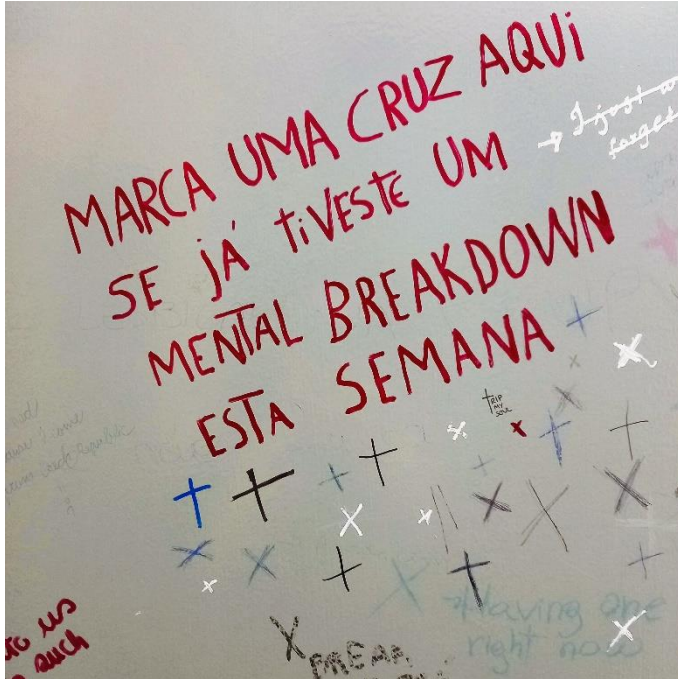 MARCA UMA CRUZ AQUi
SE JÁ tiVESTE UM
MENTAL BREAKDOWN
ESTA SEMANA
→ I just
forget
RIP
MY
SOUL
→Having one
right now
to us
such